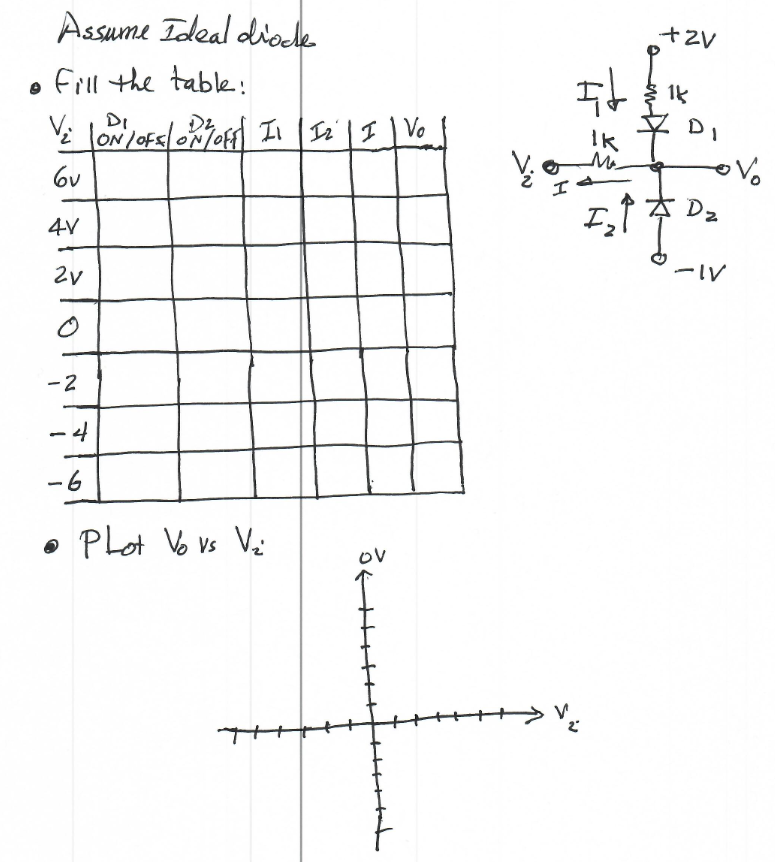 Assume Ideal diode
• Fill the table:
Vi D1 ON/OFF D2 ON/OFF I1 I2 I Vo
6V
4V
2V
0
-2
-4
-6
+2V
I1 1k
D1
1K
Vi Vo
I
I2 D2
-1V
• PLot Vo vs Vi
OV
Vi